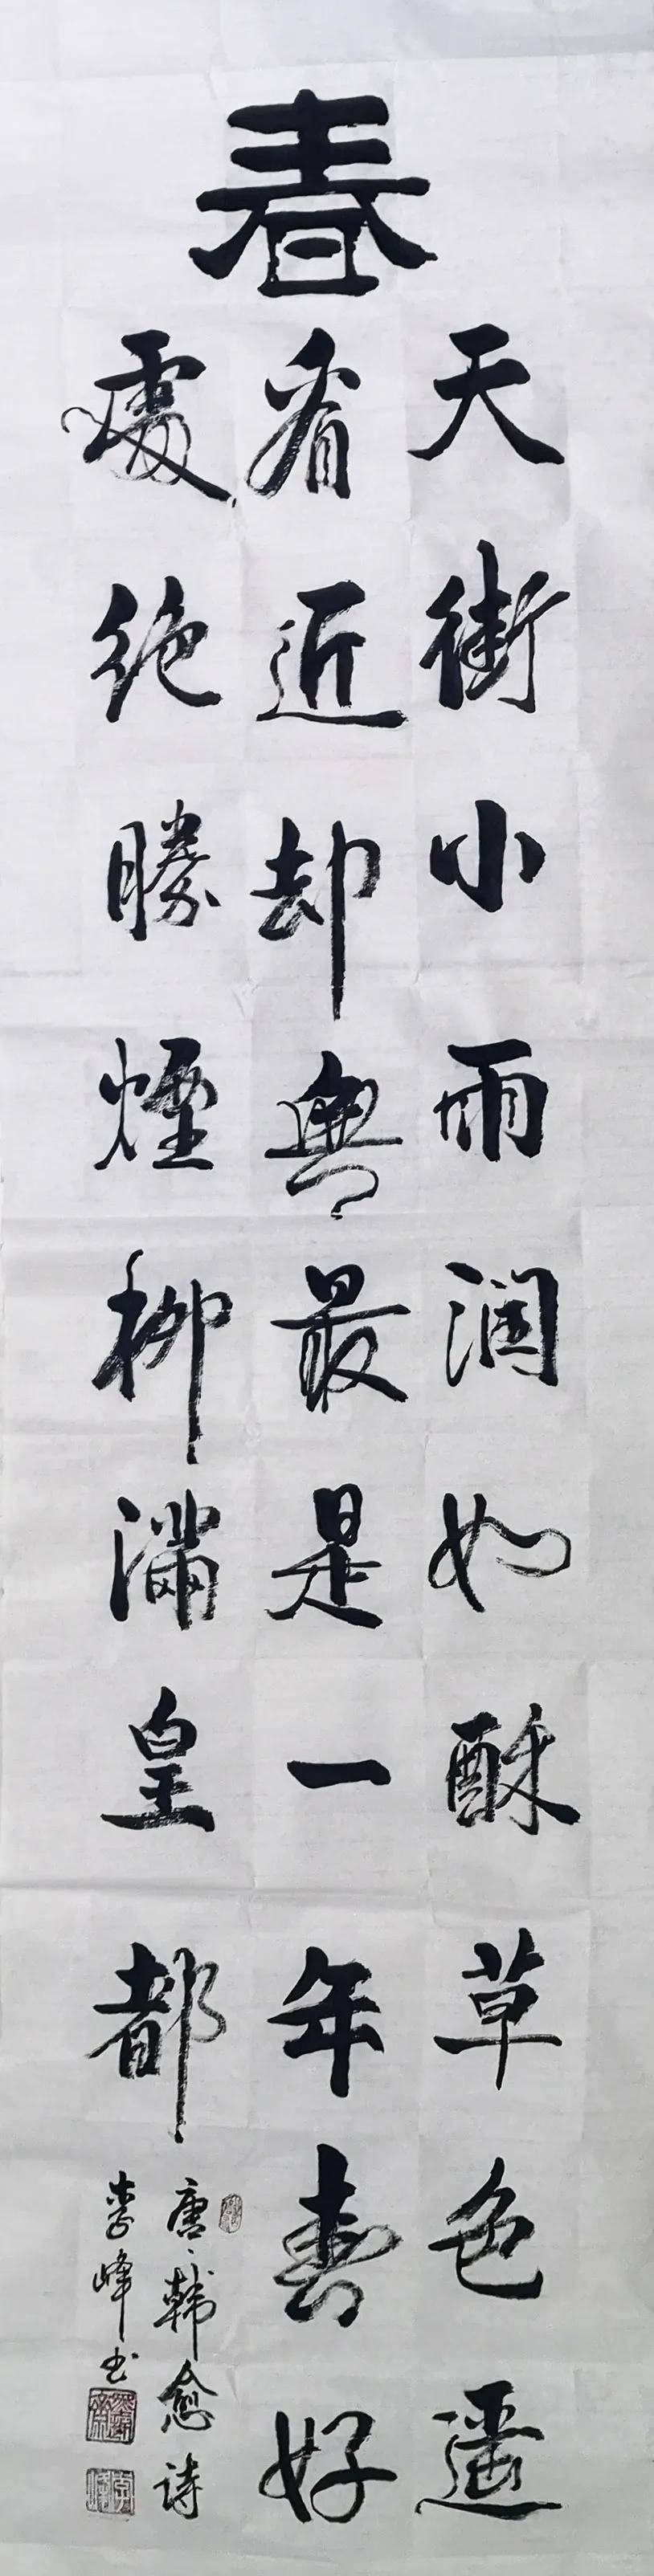 春
天街小雨润如酥草色遥
看近却無最是一年春好
處绝勝煙柳满皇都
唐韩愈诗
李峰书